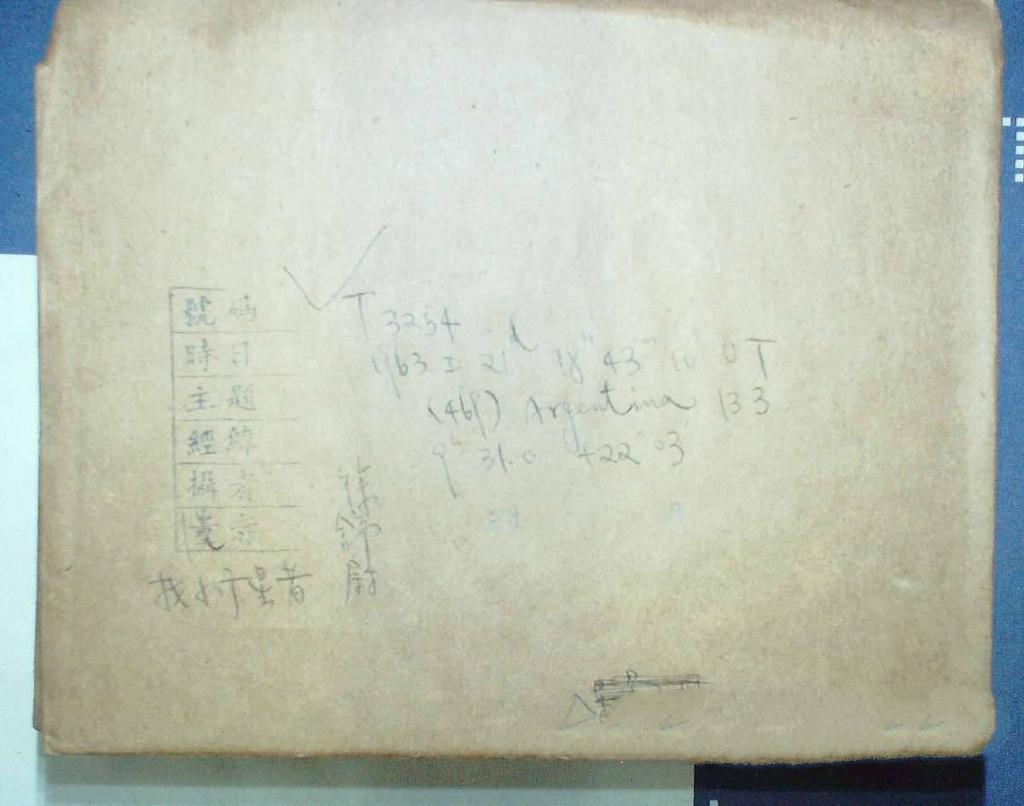 號碼
T 3254
時日
1963 I 21d 18h 43m 10 UT
主題
(469) Argentina 133
經緯
9h 31.0 +22° 03'
攝者
找小行星者